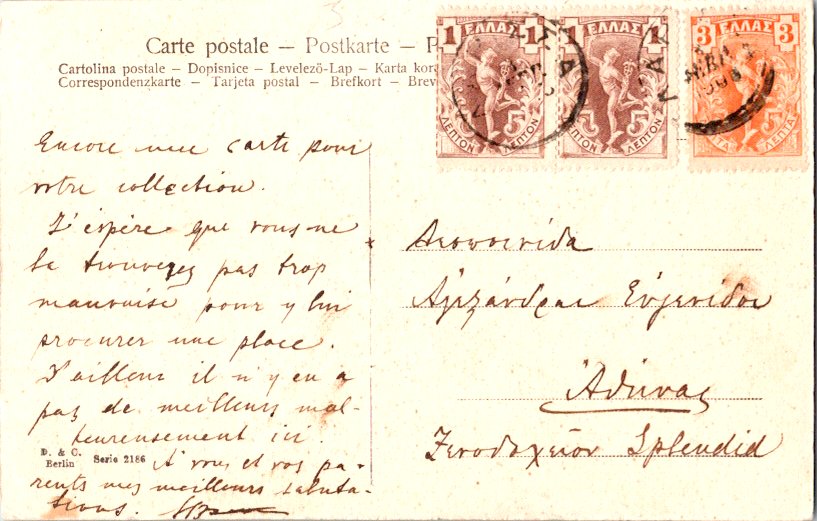 Carte postale – Postkarte – P
Cartolina postale – Dopisnice – Levelező-Lap – Karta kore
Correspondenzkarte – Tarjeta postal – Brefkort – Brev
1 ΕΛΛΑΣ 1
5 ΛΕΠΤΟΝ ΛΕΠΤΟΝ
1 ΕΛΛΑΣ 1
5 ΛΕΠΤΟΝ ΛΕΠΤΟΝ
3 ΕΛΛΑΣ 3
ΛΕΠΤΑ
Encore une carte pour
votre collection.
J'espère que vous ne
la trouverez pas trop
mauvaise pour y lui
procurer une place.
D'ailleurs il n'y en a
pas de meilleurs mal-
heureusement ici.
D. & C.
Berlin
Serie 2186
A vous et vos pa-
rents mes meilleurs saluta-
tions.
Δεσποινίδα
Ἀλεξάνδραν Εὐγενίδου
Ἀθήνας
Ξενοδοχεῖον Splendid